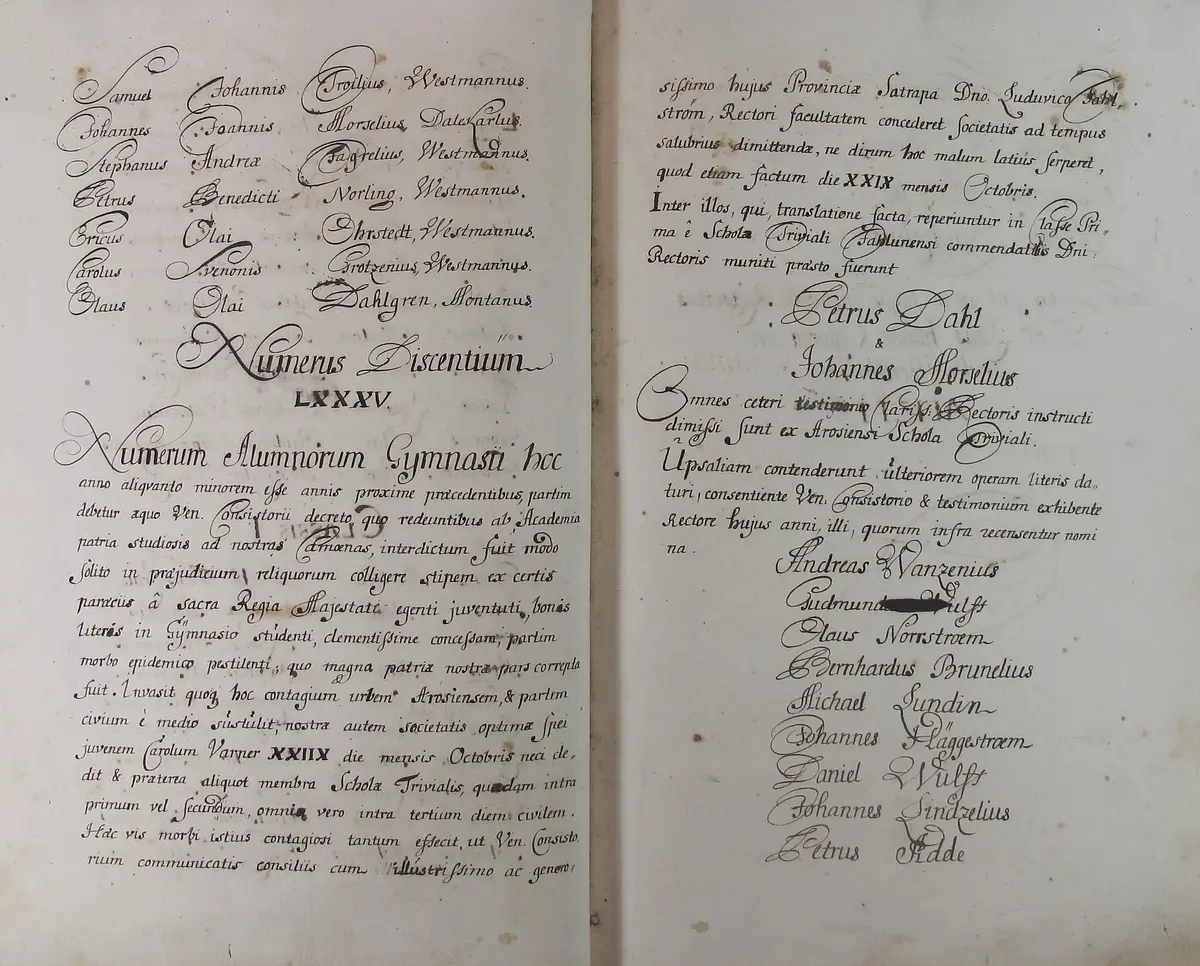 Samuel Johannis Troilius, Westmannus.
Johannes Joannis Morselius, DalesCarlus.
Stephanus Andreæ Fagrelius, Westmannus.
Petrus Benedicti Norling, Westmannus.
Ericus Olai Ohrstedt, Westmannus.
Carolus Svenonis Grotzenius, Westmannus.
Olaus Olai Dahlgren, Montanus.
Numerus Discentium
LXXXV.
Numerum Alumnorum Gymnasii hoc
anno aliqvanto minorem esse annis proxime præcedentibus, partim
debetur æquo Ven. Consistorii decreto, quo redeuntibus ab Academia
patria studiosis ad nostras Camœnas, interdictum fuit modo
solito in præjudicium reliquorum colligere stipem ex certis
paræciis â sacra Regia Majestate egenti juventuti, bonis
literis in Gymnasio studenti, clementissime concessam, partim
morbo epidemico pestilenti, quo magna patriæ nostræ pars correpta
fuit. Invasit quoq hoc contagium urbem Arosiensem, & partem
civium è medio sustulit, nostræ autem societatis optimæ spei
juvenem Carolum Varner XXIIX die mensis Octobris neci de,
dit & præterea aliquot membra Scholæ Trivialis, quædam intra
primum vel secundum, omnia vero intra tertium diem civilem.
Hæc vis morbi istius contagiosi tantum effecit, ut Ven. Consisto
rium communicatis consiliis cum illustrissimo ac genero,
sissimo hujus Provinciæ Satrapa Dno. Luduvico Fahl,
ström, Rectori facultatem concederet Societatis ad tempus
salubrius dimittendæ, ne dirum hoc malum latius serperet,
quod etiam factum die XXIX mensis Octobris.
Inter illos, qui, translatione facta, reperiuntur in Classe Pri-
ma è Schola Triviali Fahlunensi commendatiis Dni.
Rectoris muniti præsto fuerunt
Petrus Dahl
&
Johannes Morselius
Omnes ceteri testimonio Clariss. Rectoris instructi
dimissi sunt ex Arosiensi Schola Triviali.
Upsaliam contenderunt ulteriorem operam literis da-
turi, consentiente Ven. Consistorio & testimonium exhibente
Rectore hujus anni, illi, quorum infra recensentur nomi
na.
Andreas Wanzenius
Gudmund Wulft
Olaus Norrstroem
Bernhardus Brunelius
Michael Lundin
Johannes Häggestroem
Daniel Wulft
Johannes Lindzelius
Petrus Ridde